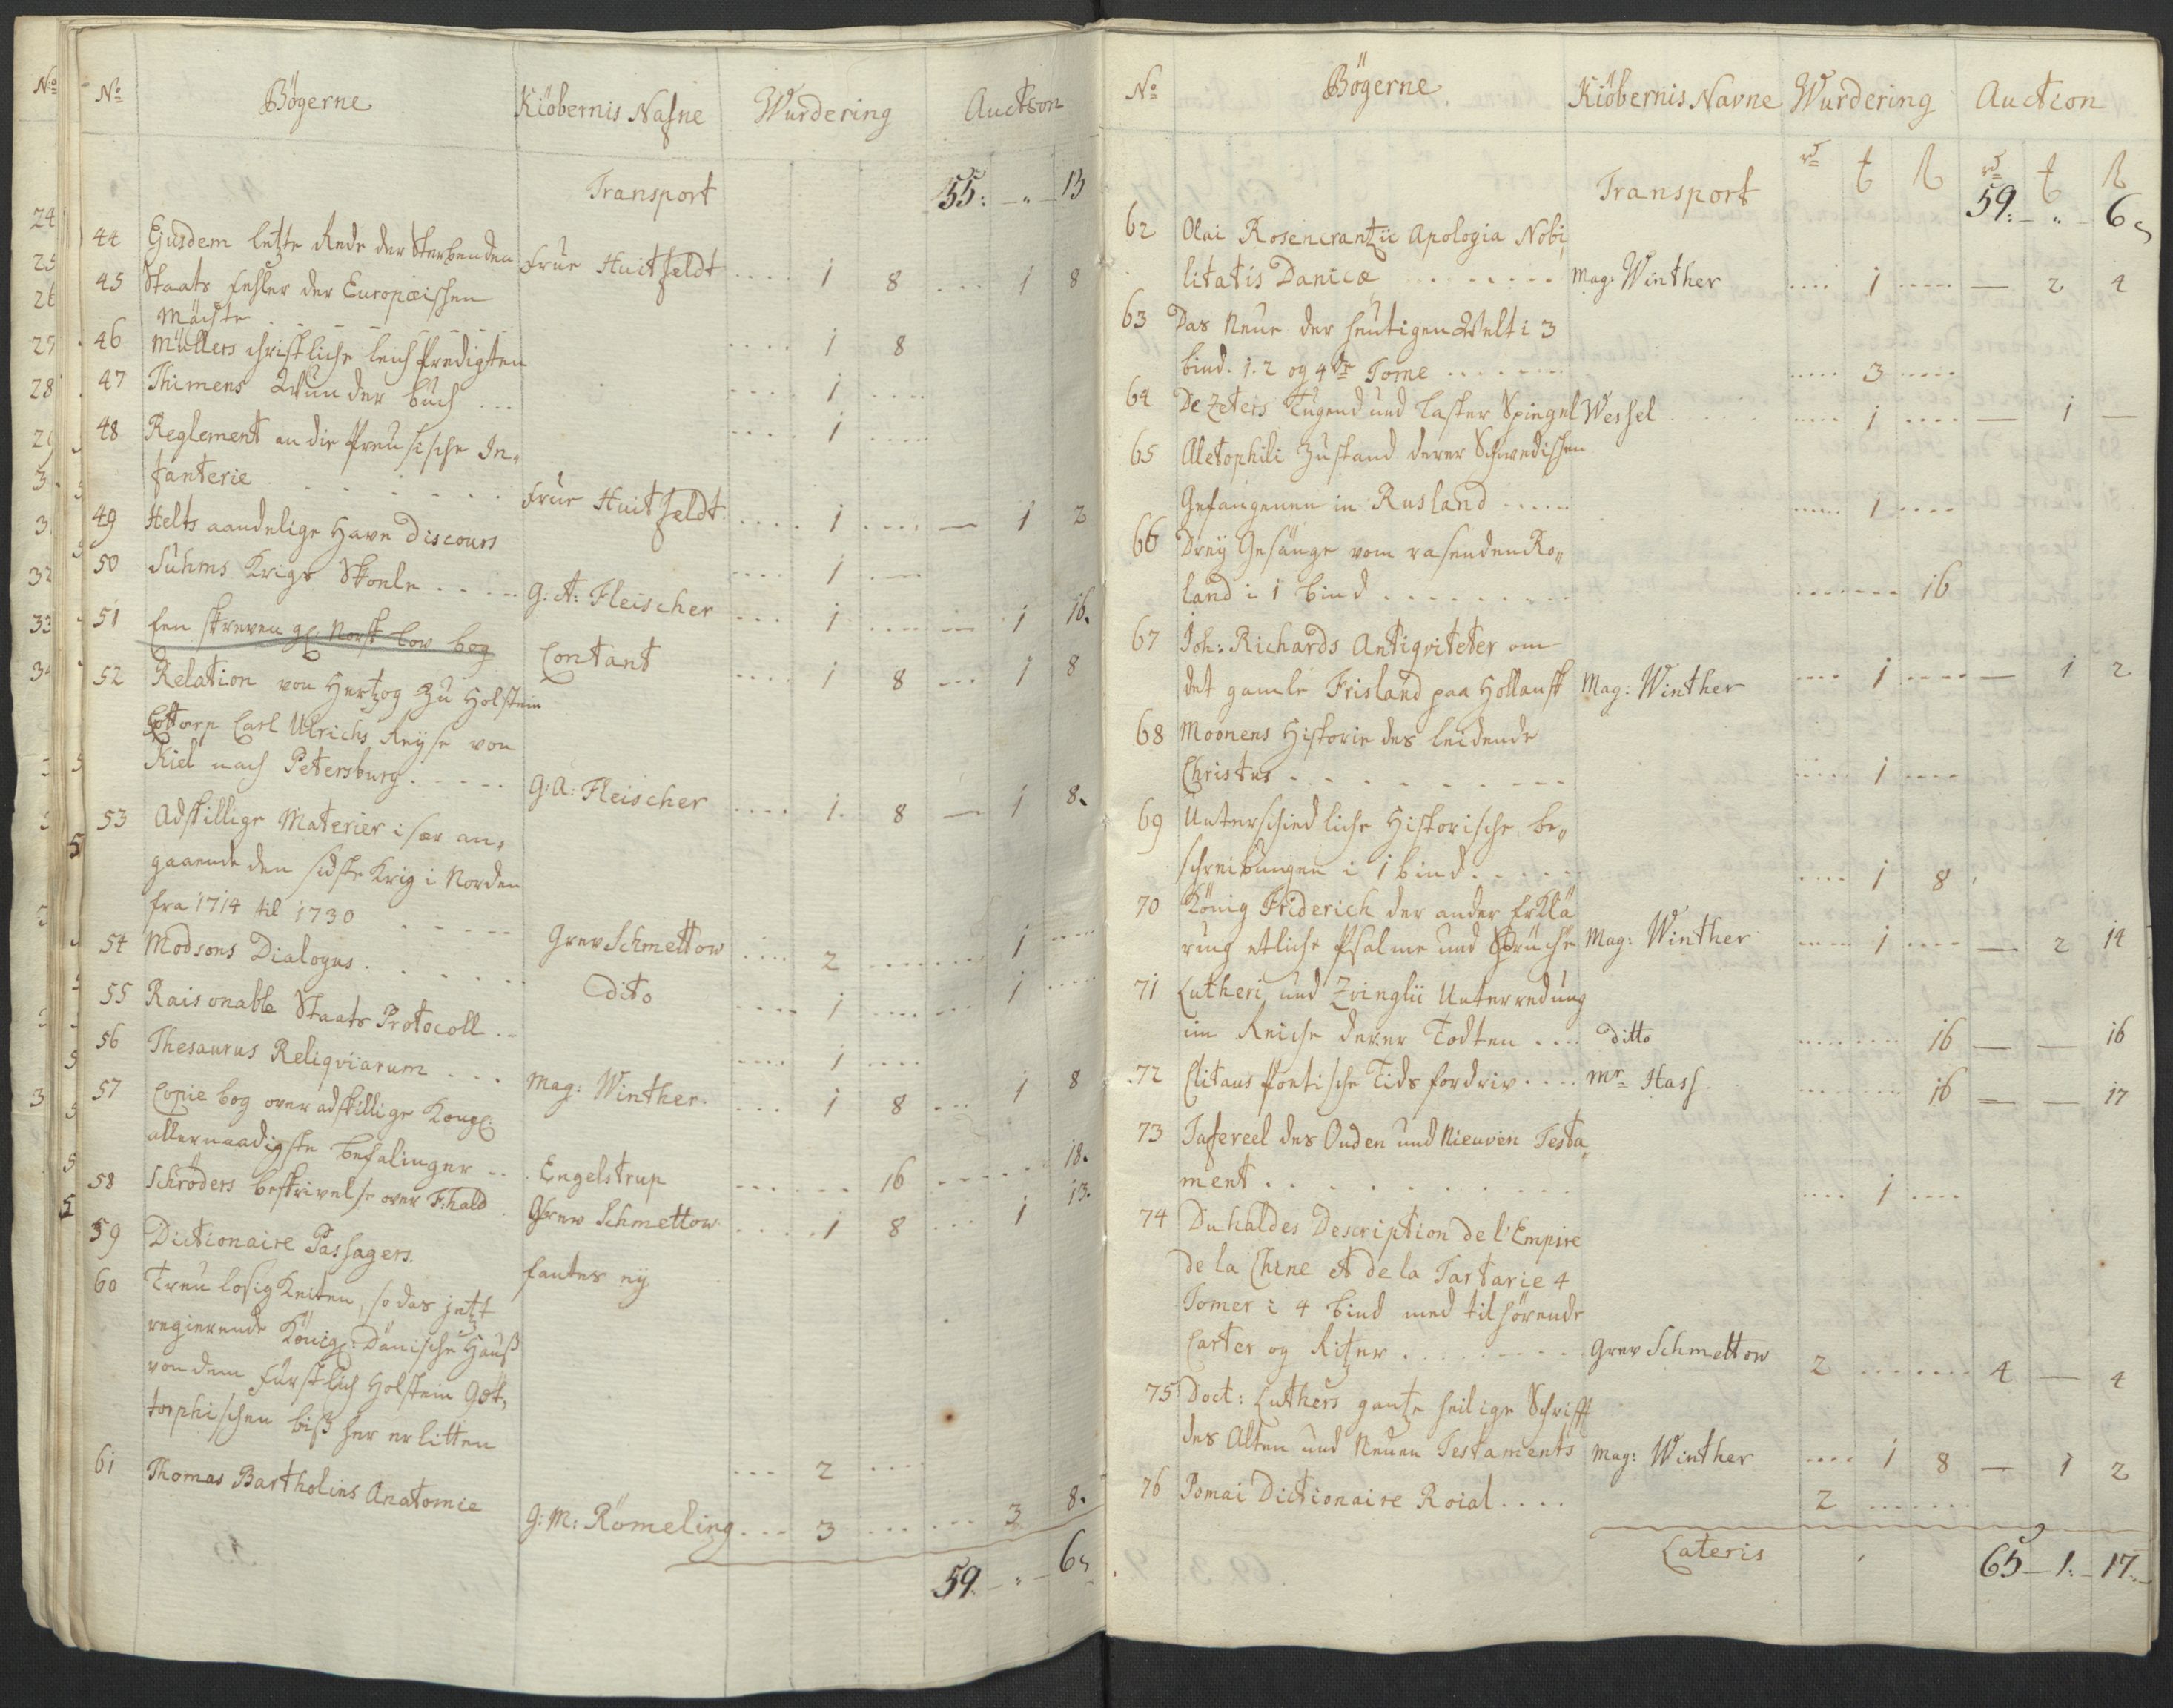 No Bögerne Kiöbernis Nafne Wurdering Auction
Transport 55: - " - 13
44 Ejusdem letzte Rede der Sterbenden Frue Huitfeldt .... 1 8 ... 1 8
45 Staats Fehler der Europæischen
Mächte .... 1 8
46 Müllers christliche leich Predigten .... 1 ....
47 Thimens Wunder buch ... .... 1 ....
48 Reglement an die Preusische In-
fanterie Frue Huitfeldt .... 1 .... — 1 2
49 Helts aandelige Have Discours .... 1 ....
50 Suhms Krigs Skoele ..... G: A: Fleischer ... 1 .... — 1 16.
51 Een skreven gl: Norsk Lov bog Contant .... 1 8 ... 1 8
52 Relation von Hertzog zu Holstein
Gottorp Carl Ulrichs Reyse von
Kiel nach Petersburg ..... G: A: Fleischer .... 1. 8 — 1 8.
53 Adskillige Materier i sær an-
gaaende den sidste Krig i Norden
fra 1714 til 1730 ...... Grev Schmettow .... 2 ....... 1 ....
54 Modsons Dialogus ...... Dito .... 1 ....... 1 ....
55 Raisonable Staats Protocoll .. .... 1 ....
56 Thesaurus Reliqviarum ... Mag: Winther. ... 1 8 ... 1 8
57 Copie bog over adskillige Kongl:
allernaadigste befalinger ... Engelstrup ...... 16 ...... 18.
58 Schröders beskrivelse over F:hald . Grev Schmettow ..... 1 8 ... 1 13.
59 Dictionaire Passagers. fantes ey
60 Treulosigkeiten, so das jetzt
regierende Königl: Dänische Hauß
von dem Fürstlich Holstein Got-
torphischen biß her erlitten ... 2 ....
61 Thomas Bartholins Anatomie G: M: Römeling ... 3 ... ... 3 8.
59. - " - 6
No Bögerne Kiöbernis Navne Wurdering Auction
Transport 59: - " - 6
62 Olai Rosencrantzii Apologia Nobi
litatis Danicæ ...... Mag: Winther .... 1 ..... — 2 4
63 Das Neue der heutigen Welt i 3
bind. 1. 2 og 4de Tome ...... .... 3 ....
64 De Zeters Tugend und Laster Spiegel Wessel .... 1 .... — 1 —
65 Aletophili Zustand derer Schwedischen
Gefangenen in Rusland ..... ..... 1 ....
66 Drey Gesänge vom rasenden Ro-
land i 1 bind ......... ....... 16
67 Joh: Richards Antiqviteter om
det gamle Frisland paa Hollansk Mag: Winther .... 1 .... — 1 2
68 Moonens Historie des leidende
Christus ......... .... 1 ....
69 Unterschiedliche Historische be-
schreibungen i 1 bind ..... .... 1 8
70 König Friderich der ander Erklä
rung etliche Psalme und Sprüche Mag: Winther .... 1 .... — 2 14
71 Lutheri und Zvinglii Unterredung
im Reiche derer Todten .... Ditto ....... 16 — — 16
72 Clitaus Poetische Tids fordriv .... Mr Hass. ....... 16 — — 17
73 Tafereel des Ouden und Nieuven Testa-
ment ......... .... 1 ....
74 Du haldes Description de l'Empire
de la Chine et de la Tartarie 4
Tomer i 4 bind med tilhörende
Carter og Ritzer ........ Grev Schmettow 2 ....... 4 — 4
75 Doct: Luthers gantze heilige Schrifft
des Alten und Neuen Testaments Mag: Winther .... 1 8 — 1 2
76 Pomai Dictionaire Roial .... 2 ......
Lateris 65 - 1. - 17. -